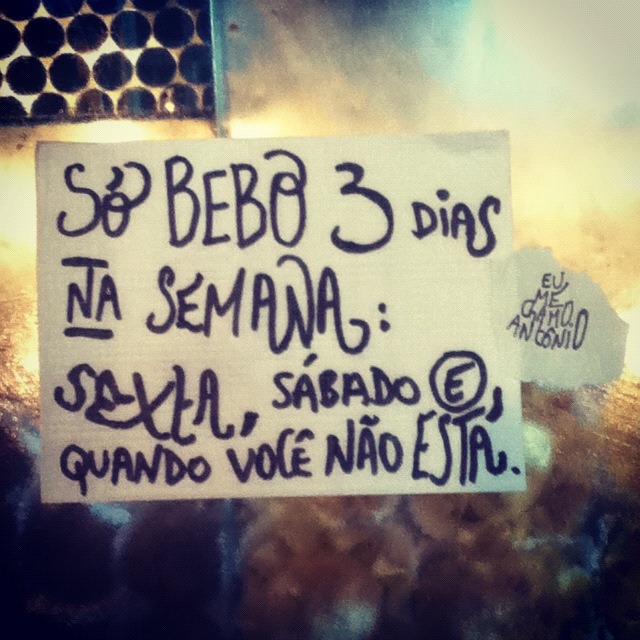 SÓ BEBO 3 DIAS
NA SEMANA:
SEXTA, SÁBADO E,
QUANDO VOCÊ NÃO ESTÁ.
EU,
ME
CHAMO,
ANTÔNIO